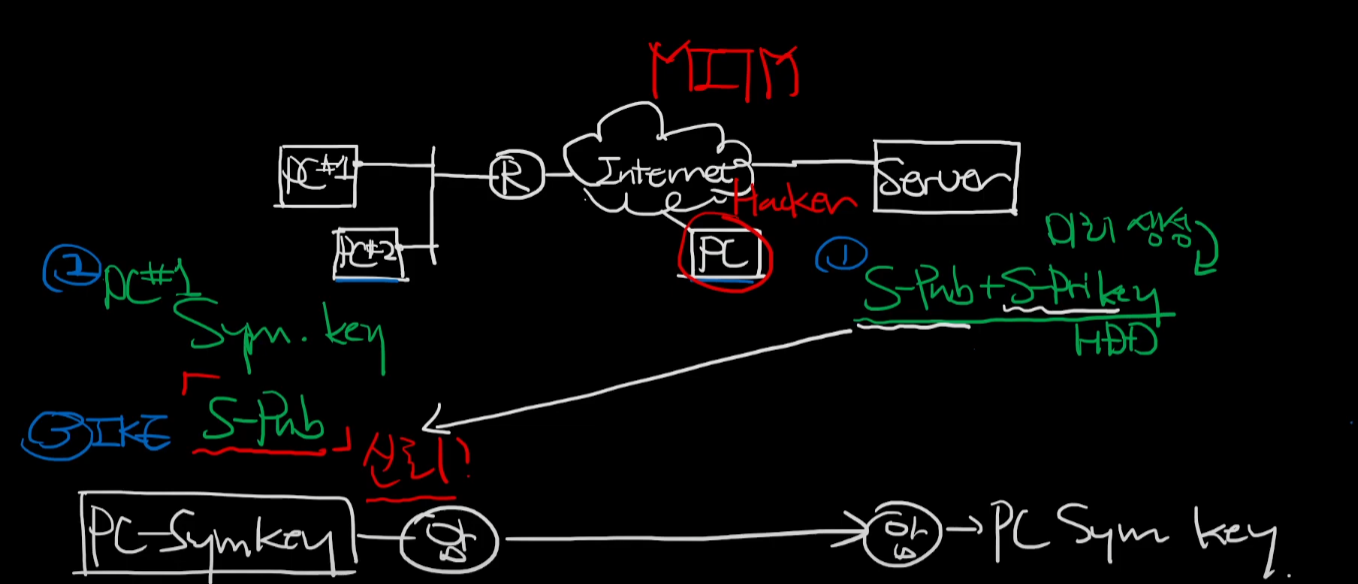 MITM
PC#1
R
Internet
Server
Hacker
PC#2
PC
① 미리 생성
S-Pub+S-Prikey
HDD
② PC#1
Sym. key
③ IKE 「S-Pub」 신뢰?
PC-Symkey 암 → 암 → PC Sym key.